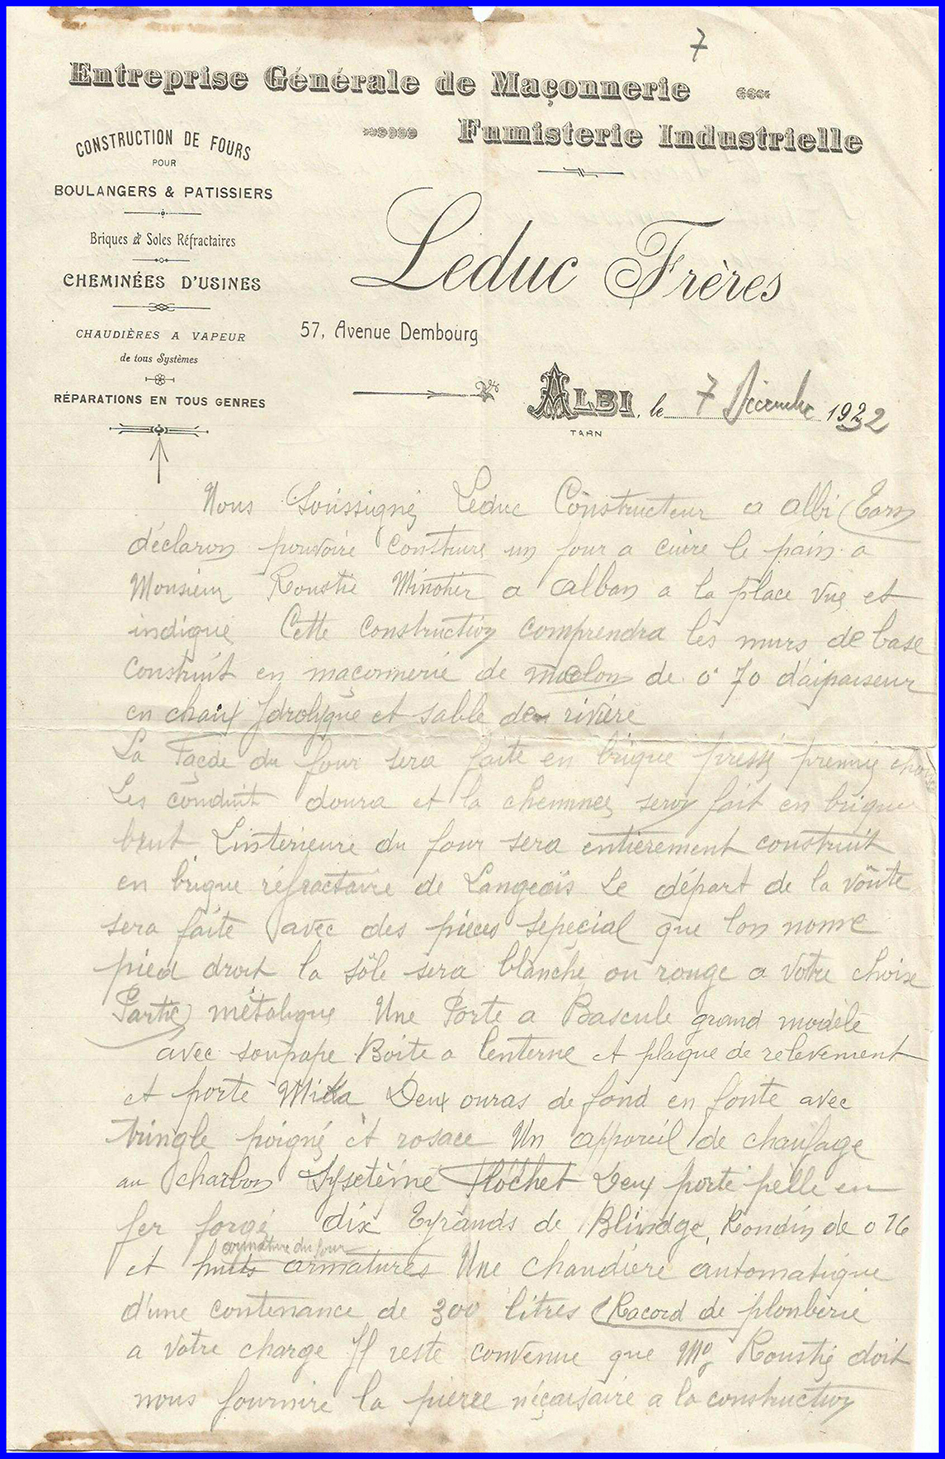 7
Entreprise Générale de Maçonnerie
Fumisterie Industrielle
CONSTRUCTION DE FOURS
POUR
BOULANGERS & PATISSIERS
Briques & Soles Réfractaires
CHEMINÉES D'USINES
CHAUDIÈRES A VAPEUR
de tous Systèmes
RÉPARATIONS EN TOUS GENRES
Leduc Frères
57, Avenue Dembourg
ALBI, le 7 Décembre 1932
TARN
Nous Soussigné Leduc Constructeur a albi (Tarn
déclaron pouvoire construire un four a cuire le pain a
Monsieur Roustie Minotier a alban a la place vue et
indiqué Cette construction comprendra les murs de base
construit en maçonnerie de moelon de 0.70 d'aipaiseur
en chaux ydrolique et sable de rivière
La Façde du four sera faite en brique pressé premier choix
Les conduit doura et la cheminee seron fait en brique
brut Linterieure du four sera entièrement construit
en brique réfractaire de Langeois Le départ de la voûte
sera faite avec des pieces sepecial que lon nome
pied droit la sôle sera blanche ou rouge a votre choise
Partie métalique Une Porte a Bascule grand modèle
avec soupape Boite a lenterne et plaque de relevement
et porte Mika Deux ouras de fond en fonte avec
tringle poigné et rosace Un appareil de chaufage
au charbon Syseteme Plochet Deux porte pelle en
fer forgé dix Tyrands de Blindge, Rondin de 0 16
armature du four
et huits armatures Une chaudière automatique
d'une contenance de 300 litres (Racord de plonberie
a votre charge Il reste convenue que Mr Roustié doit
nous fournire la pierre néçaisaire a la construction